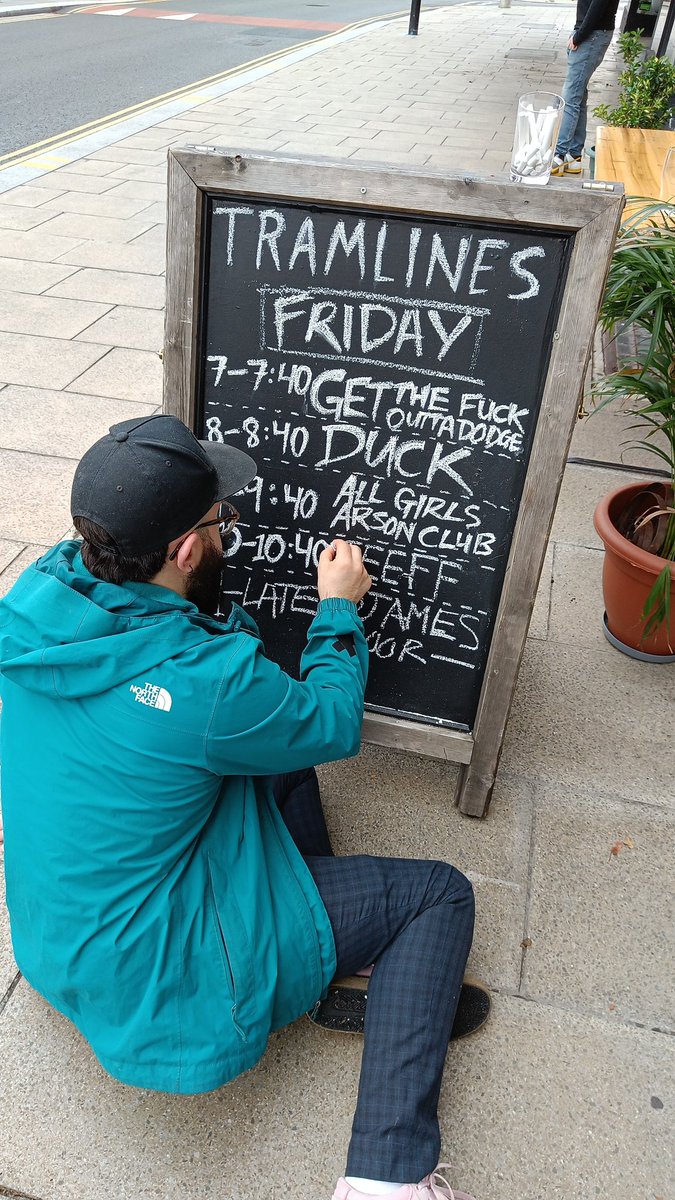 TRAMLINES
FRIDAY
7-7:40 GET THE FUCK OUTTA DODGE
8-8:40 DUCK
-9:40 ALL GIRLS ARSON CLUB
-10:40 EFF
-LATE JAMES
THE NORTH FACE